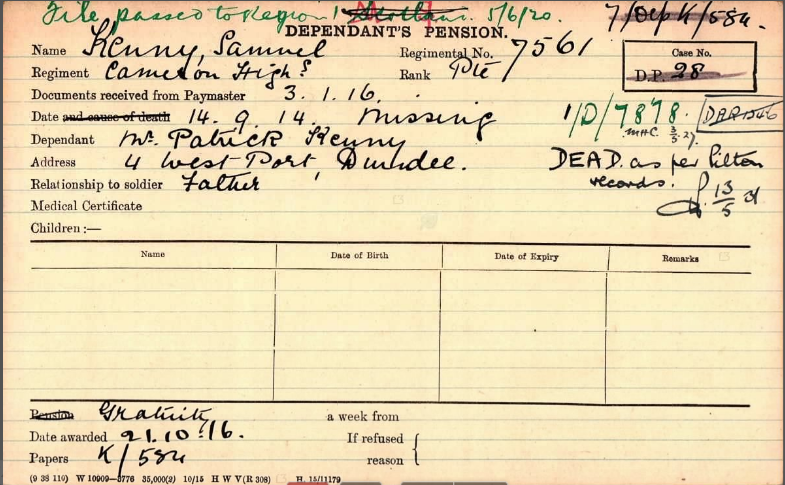 File passed to Region 1 Scotland. 5/6/20. 7/Dep K/584.
DEPENDANT'S PENSION.
Name Kenny, Samuel
Regimental No. 7561
Case No.
D.P. 28
Regiment Cameron Highrs
Rank Pte
Documents received from Paymaster 3.1.16.
Date and cause of death 14.9.14. Missing
1/D/7878.
MHC 3/5.27.
Dependant Mr. Patrick Kenny
Address 4 West Port, Dundee.
DEAD. as per
records.
13/5 31
Relationship to soldier Father
Medical Certificate
Children :—
Name Date of Birth Date of Expiry Remarks
Pension Gratuity a week from
Date awarded 21.10.16. If refused
Papers K/584 reason
(9 38 110) W 10909—3776 35,000(2) 10/15 H W V(R 308) H. 15/11179